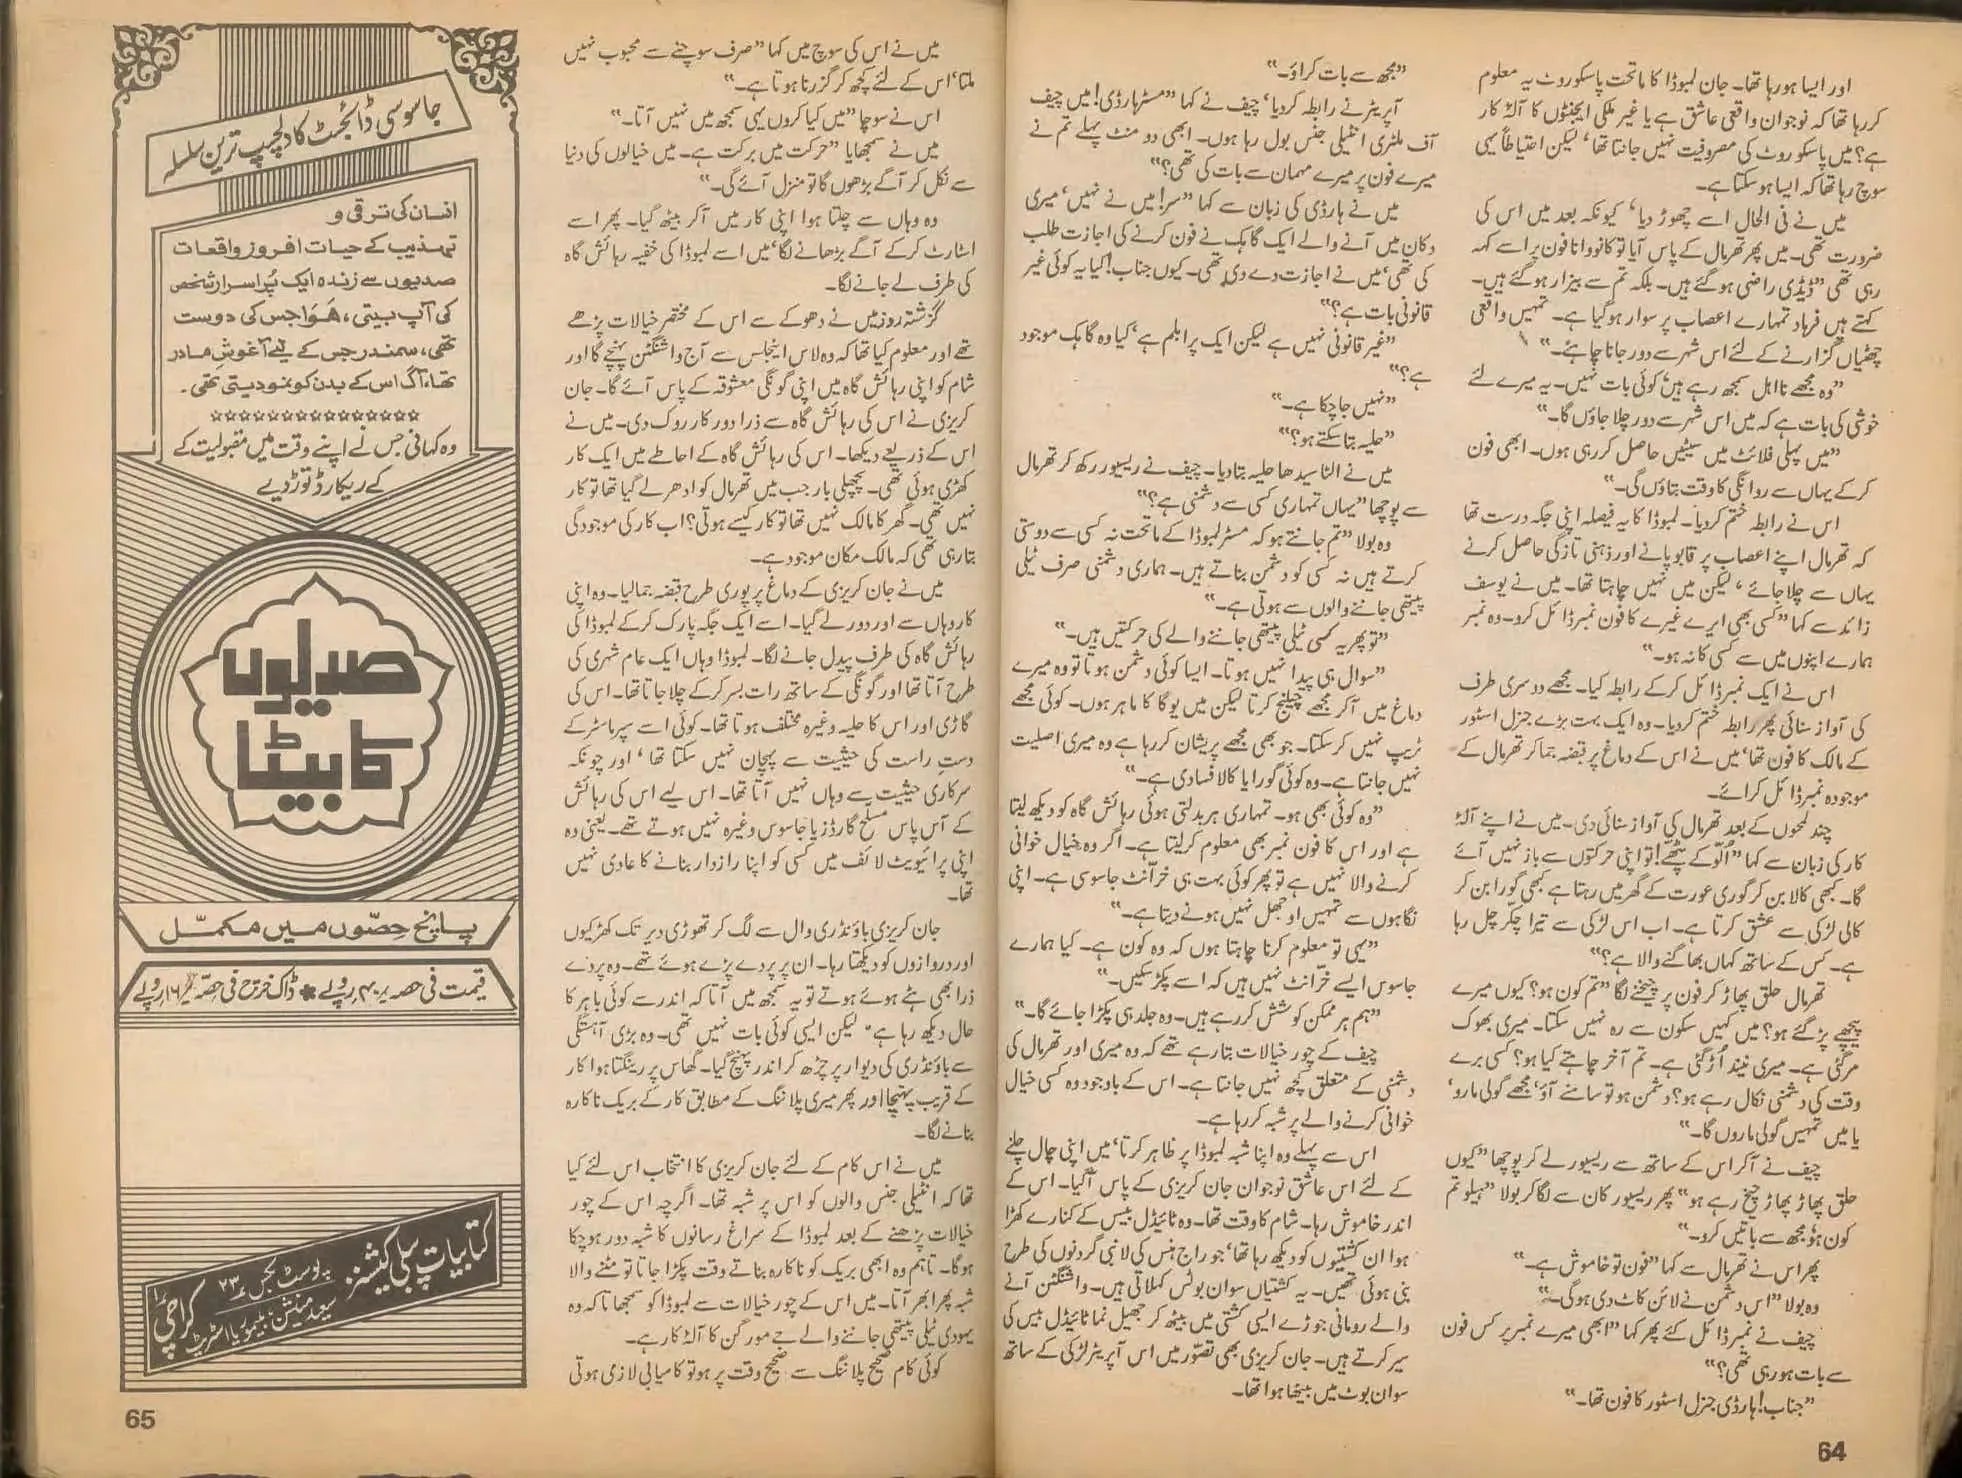 اور ایسا ہو رہا تھا۔ جان لمبوڈا کا ماتحت پاسکو روٹ یہ معلوم
کر رہا تھا کہ نوجوان واقعی عاشق ہے یا غیر ملکی ایجنٹوں کا آلۂ کار
ہے؟ میں پاسکو روٹ کی مصروفیت نہیں جانتا تھا‘ لیکن احتیاطاً یہی
سوچ رہا تھا کہ ایسا ہو سکتا ہے۔
میں نے فی الحال اسے چھوڑ دیا‘ کیونکہ بعد میں اس کی
ضرورت تھی۔ میں پھر تھرمال کے پاس آیا تو کانووانا فون پر اسے کہہ
رہی تھی ”ڈیڈی راضی ہو گئے ہیں۔ بلکہ تم سے بیزار ہو گئے ہیں۔
کہتے ہیں فرہاد تمہارے اعصاب پر سوار ہو گیا ہے۔ تمہیں واقعی
چھٹیاں گزارنے کے لئے اس شہر سے دور جانا چاہئے۔“
”وہ مجھے نااہل سمجھ رہے ہیں‘ کوئی بات نہیں۔ یہ میرے لئے
خوشی کی بات ہے کہ میں اس شہر سے دور چلا جاؤں گا۔“
”میں پہلی فلائٹ میں سیٹیں حاصل کر رہی ہوں۔ ابھی فون
کر کے یہاں سے روانگی کا وقت بتاؤں گی۔“
اس نے رابطہ ختم کر دیا۔ لمبوڈا کا یہ فیصلہ اپنی جگہ درست تھا
کہ تھرمال اپنے اعصاب پر قابو پانے اور ذہنی تازگی حاصل کرنے
یہاں سے چلا جائے‘ لیکن میں نہیں چاہتا تھا۔ میں نے یوسف
زائد سے کہا ”کسی بھی ایرے غیرے کا فون نمبر ڈائل کرو۔ وہ نمبر
ہمارے اپنوں میں سے کسی کا نہ ہو۔“
اس نے ایک نمبر ڈائل کر کے رابطہ کیا۔ مجھے دوسری طرف
کی آواز سنائی پھر رابطہ ختم کر دیا۔ وہ ایک بہت بڑے جنرل اسٹور
کے مالک کا فون تھا‘ میں نے اس کے دماغ پر قبضہ جما کر تھرمال کے
موجودہ نمبر ڈائل کرائے۔
چند لمحوں کے بعد تھرمال کی آواز سنائی دی۔ میں نے اپنے آلۂ
کار کی زبان سے کہا ”اُلّو کے پٹھے! تو اپنی حرکتوں سے باز نہیں آئے
گا۔ کبھی کالا بن کر گوری عورت کے گھر میں رہتا ہے کبھی گورا بن کر
کالی لڑکی سے عشق کرتا ہے۔ اب اس لڑکی سے تیرا چکّر چل رہا
ہے۔ کس کے ساتھ کہاں بھاگنے والا ہے؟“
تھرمال حلق پھاڑ کر فون پر چیخنے لگا ”تم کون ہو؟ کیوں میرے
پیچھے پڑ گئے ہو؟ میں کہیں سکون سے رہ نہیں سکتا۔ میری بھوک
مر گئی ہے۔ میری نیند اُڑ گئی ہے۔ تم آخر چاہتے کیا ہو؟ کسی برے
وقت کی دشمنی نکال رہے ہو؟ دشمن ہو تو سامنے آؤ‘ مجھے گولی مارو‘
یا میں تمہیں گولی ماروں گا۔“
چیف نے آکر اس کے ساتھ سے ریسیور لے کر پوچھا ”کیوں
حلق پھاڑ پھاڑ چیخ رہے ہو“ پھر ریسیور کان سے لگا کر بولا ”ہیلو تم
کون ہو‘ مجھ سے باتیں کرو۔“
پھر اس نے تھرمال سے کہا ”فون تو خاموش ہے۔“
وہ بولا ”اس دشمن نے لائن کاٹ دی ہوگی۔“
چیف نے نمبر ڈائل کئے پھر کہا ”ابھی میرے نمبر پر کس فون
سے بات ہو رہی تھی؟“
”جناب! ہارڈی جنرل اسٹور کا فون تھا۔“
64
”مجھ سے بات کراؤ۔“
آپریٹر نے رابطہ کر دیا‘ چیف نے کہا ”مسٹر ہارڈی! میں چیف
آف ملٹری انٹیلی جنس بول رہا ہوں۔ ابھی دو منٹ پہلے تم نے
میرے فون پر میرے مہمان سے بات کی تھی؟“
میں نے ہارڈی کی زبان سے کہا ”سر! میں نے نہیں‘ میری
دکان میں آنے والے ایک گاہک نے فون کرنے کی اجازت طلب
کی تھی‘ میں نے اجازت دے دی تھی۔ کیوں جناب! کیا یہ کوئی غیر
قانونی بات ہے؟“
”غیر قانونی نہیں ہے لیکن ایک پرابلم ہے‘ کیا وہ گاہک موجود
ہے؟“
”نہیں جاچکا ہے۔“
”حلیہ بتا سکتے ہو؟“
میں نے الٹا سیدھا حلیہ بتا دیا۔ چیف نے ریسیور رکھ کر تھرمال
سے پوچھا ”یہاں تمہاری کسی سے دشمنی ہے؟“
وہ بولا ”تم جانتے ہو کہ مسٹر لمبوڈا کے ماتحت نہ کسی سے دوستی
کرتے ہیں نہ کسی کو دشمن بناتے ہیں۔ ہماری دشمنی صرف ٹیلی
پیتھی جاننے والوں سے ہوتی ہے۔“
”تو پھر یہ کسی ٹیلی پیتھی جاننے والے کی حرکتیں ہیں۔“
”سوال ہی پیدا نہیں ہوتا۔ ایسا کوئی دشمن ہوتا تو وہ میرے
دماغ میں آکر مجھے چیلنج کرتا لیکن میں یوگا کا ماہر ہوں۔ کوئی مجھے
ٹریپ نہیں کر سکتا۔ جو بھی مجھے پریشان کر رہا ہے وہ میری اصلیت
نہیں جانتا ہے۔ وہ کوئی گورا یا کالا فسادی ہے۔“
”وہ کوئی بھی ہو۔ تمہاری ہر بدلتی ہوئی رہائش گاہ کو دیکھ لیتا
ہے اور اس کا فون نمبر بھی معلوم کر لیتا ہے۔ اگر وہ خیال خوانی
کرنے والا نہیں ہے تو پھر کوئی بہت ہی خرّانٹ جاسوسی ہے۔ اپنی
نگاہوں سے تمہیں اوجھل نہیں ہونے دیتا ہے۔“
”یہی تو معلوم کرنا چاہتا ہوں کہ وہ کون ہے۔ کیا ہمارے
جاسوس ایسے خرّانٹ نہیں ہیں کہ اسے پکڑ سکیں۔“
”ہم ہر ممکن کوشش کر رہے ہیں۔ وہ جلد ہی پکڑا جائے گا۔“
چیف کے چور خیالات بتا رہے تھے کہ وہ میری اور تھرمال کی
دشمنی کے متعلق کچھ نہیں جانتا ہے۔ اس کے باوجود وہ کسی خیال
خوانی کرنے والے پر شبہ کر رہا ہے۔
اس سے پہلے وہ اپنا شبہ لمبوڈا پر ظاہر کرتا‘ میں اپنی چال چلنے
کے لئے اس عاشق نوجوان جان کریزی کے پاس آگیا۔ اس کے
اندر خاموش رہا۔ شام کا وقت تھا۔ وہ ٹائیڈل بیس کے کنارے کھڑا
ہوا ان کشتیوں کو دیکھ رہا تھا‘ جو راج ہنس کی لانبی گردنوں کی طرح
بنی ہوئی تھیں۔ یہ کشتیاں سوان بوٹس کہلاتی ہیں۔ واشنگٹن آنے
والے رومانی جوڑے ایسی کشتی میں بیٹھ کر جھیل نما ٹائیڈل بیس کی
سیر کرتے ہیں۔ جان کریزی بھی تصوّر میں اس آپریٹر لڑکی کے ساتھ
سوان بوٹ میں بیٹھا ہوا تھا۔
میں نے اس کی سوچ میں کہا ”صرف سوچنے سے محبوب نہیں
ملتا‘ اس کے لئے کچھ کر گزرنا ہوتا ہے۔“
اس نے سوچا ”میں کیا کروں یہی سمجھ میں نہیں آتا۔“
میں نے سمجھایا ”حرکت میں برکت ہے۔ میں خیالوں کی دنیا
سے نکل کر آگے بڑھوں گا تو منزل آئے گی۔“
وہ وہاں سے چلتا ہوا اپنی کار میں آکر بیٹھ گیا۔ پھر اسے
اسٹارٹ کر کے آگے بڑھانے لگا‘ میں اسے لمبوڈا کی خفیہ رہائش گاہ
کی طرف لے جانے لگا۔
گزشتہ روز میں نے دھوکے سے اس کے مختصر خیالات پڑھے
تھے اور معلوم کیا تھا کہ وہ لاس اینجلس سے آج واشنگٹن پہنچے گا اور
شام کو اپنی رہائش گاہ میں اپنی گونگی معشوقہ کے پاس آئے گا۔ جان
کریزی نے اس کی رہائش گاہ سے ذرا دور کار روک دی۔ میں نے
اس کے ذریعے دیکھا۔ اس کی رہائش گاہ کے احاطے میں ایک کار
کھڑی ہوئی تھی۔ پچھلی بار جب میں تھرمال کو ادھر لے گیا تھا تو کار
نہیں تھی۔ گھر کا مالک نہیں تھا تو کار کیسے ہوتی؟ اب کار کی موجودگی
بتا رہی تھی کہ مالک مکان موجود ہے۔
میں نے جان کریزی کے دماغ پر پوری طرح قبضہ جمالیا۔ وہ اپنی
کار وہاں سے اور دور لے گیا۔ اسے ایک جگہ پارک کر کے لمبوڈا کی
رہائش گاہ کی طرف پیدل جانے لگا۔ لمبوڈا وہاں ایک عام شہری کی
طرح آتا تھا اور گونگی کے ساتھ رات بسر کر کے چلا جاتا تھا۔ اس کی
گاڑی اور اس کا حلیہ وغیرہ مختلف ہوتا تھا۔ کوئی اسے سپر ماسٹر کے
دستِ راست کی حیثیت سے پہچان نہیں سکتا تھا‘ اور چونکہ
سرکاری حیثیت سے وہاں نہیں آتا تھا۔ اس لیے اس کی رہائش
کے آس پاس مسلح گارڈز یا جاسوس وغیرہ نہیں ہوتے تھے۔ یعنی وہ
اپنی پرائیویٹ لائف میں کسی کو اپنا رازدار بنانے کا عادی نہیں
تھا۔
جان کریزی باؤنڈری وال سے لگ کر تھوڑی دیر تک کھڑکیوں
اور دروازوں کو دیکھتا رہا۔ ان پر پردے پڑے ہوئے تھے۔ وہ پردے
ذرا بھی ہٹے ہوئے ہوتے تو یہ سمجھ میں آتا کہ اندر سے کوئی باہر کا
حال دیکھ رہا ہے‘ لیکن ایسی کوئی بات نہیں تھی۔ وہ بڑی آہستگی
سے باؤنڈری کی دیوار پر چڑھ کر اندر پہنچ گیا۔ گھاس پر رینگتا ہوا کار
کے قریب پہنچا اور پھر میری پلاننگ کے مطابق کار کے بریک ناکارہ
بنانے لگا۔
میں نے اس کام کے لئے جان کریزی کا انتخاب اس لئے کیا
تھا کہ انٹیلی جنس والوں کو اس پر شبہ تھا۔ اگرچہ اس کے چور
خیالات پڑھنے کے بعد لمبوڈا کے سراغ رسانوں کا شبہ دور ہو چکا
ہوگا۔ تاہم وہ ابھی بریک کو ناکارہ بناتے وقت پکڑا جاتا تو مٹنے والا
شبہ پھر ابھر آتا۔ میں اس کے چور خیالات سے لمبوڈا کو سمجھاتا کہ وہ
یہودی ٹیلی پیتھی جاننے والے جے مورگن کا آلۂ کار ہے۔
کوئی کام صحیح پلاننگ سے صحیح وقت پر ہو تو کامیابی لازمی ہوتی
جاسوسی ڈائجسٹ کا دلچسپ ترین سلسلہ
انسان کی ترقی و
تہذیب کے حیات افروز واقعات
صدیوں سے زندہ ایک پُراسرار شخص
کی آپ بیتی، هَوَا جس کی دوست
تھی، سمندر جس کے لیے آغوشِ مادر
تھا، آگ اس کے بدن کو نمو دیتی تھی۔
☆☆☆☆☆☆☆☆☆☆☆☆☆☆☆
وہ کہانی جس نے اپنے وقت میں مقبولیت کے
کے ریکارڈ توڑ دیے
صدیوں
کا بیٹا
پانچ حصّوں میں مکمّل
قیمت فی حصہ ۴۰ روپے ✽ ڈاک خرچ فی حصّہ ۱۶ روپے
کتابیات پبلی کیشنز پوسٹ بکس ۲۳ کراچی ۱
سعید مینشن بلیموریا اسٹریٹ
65